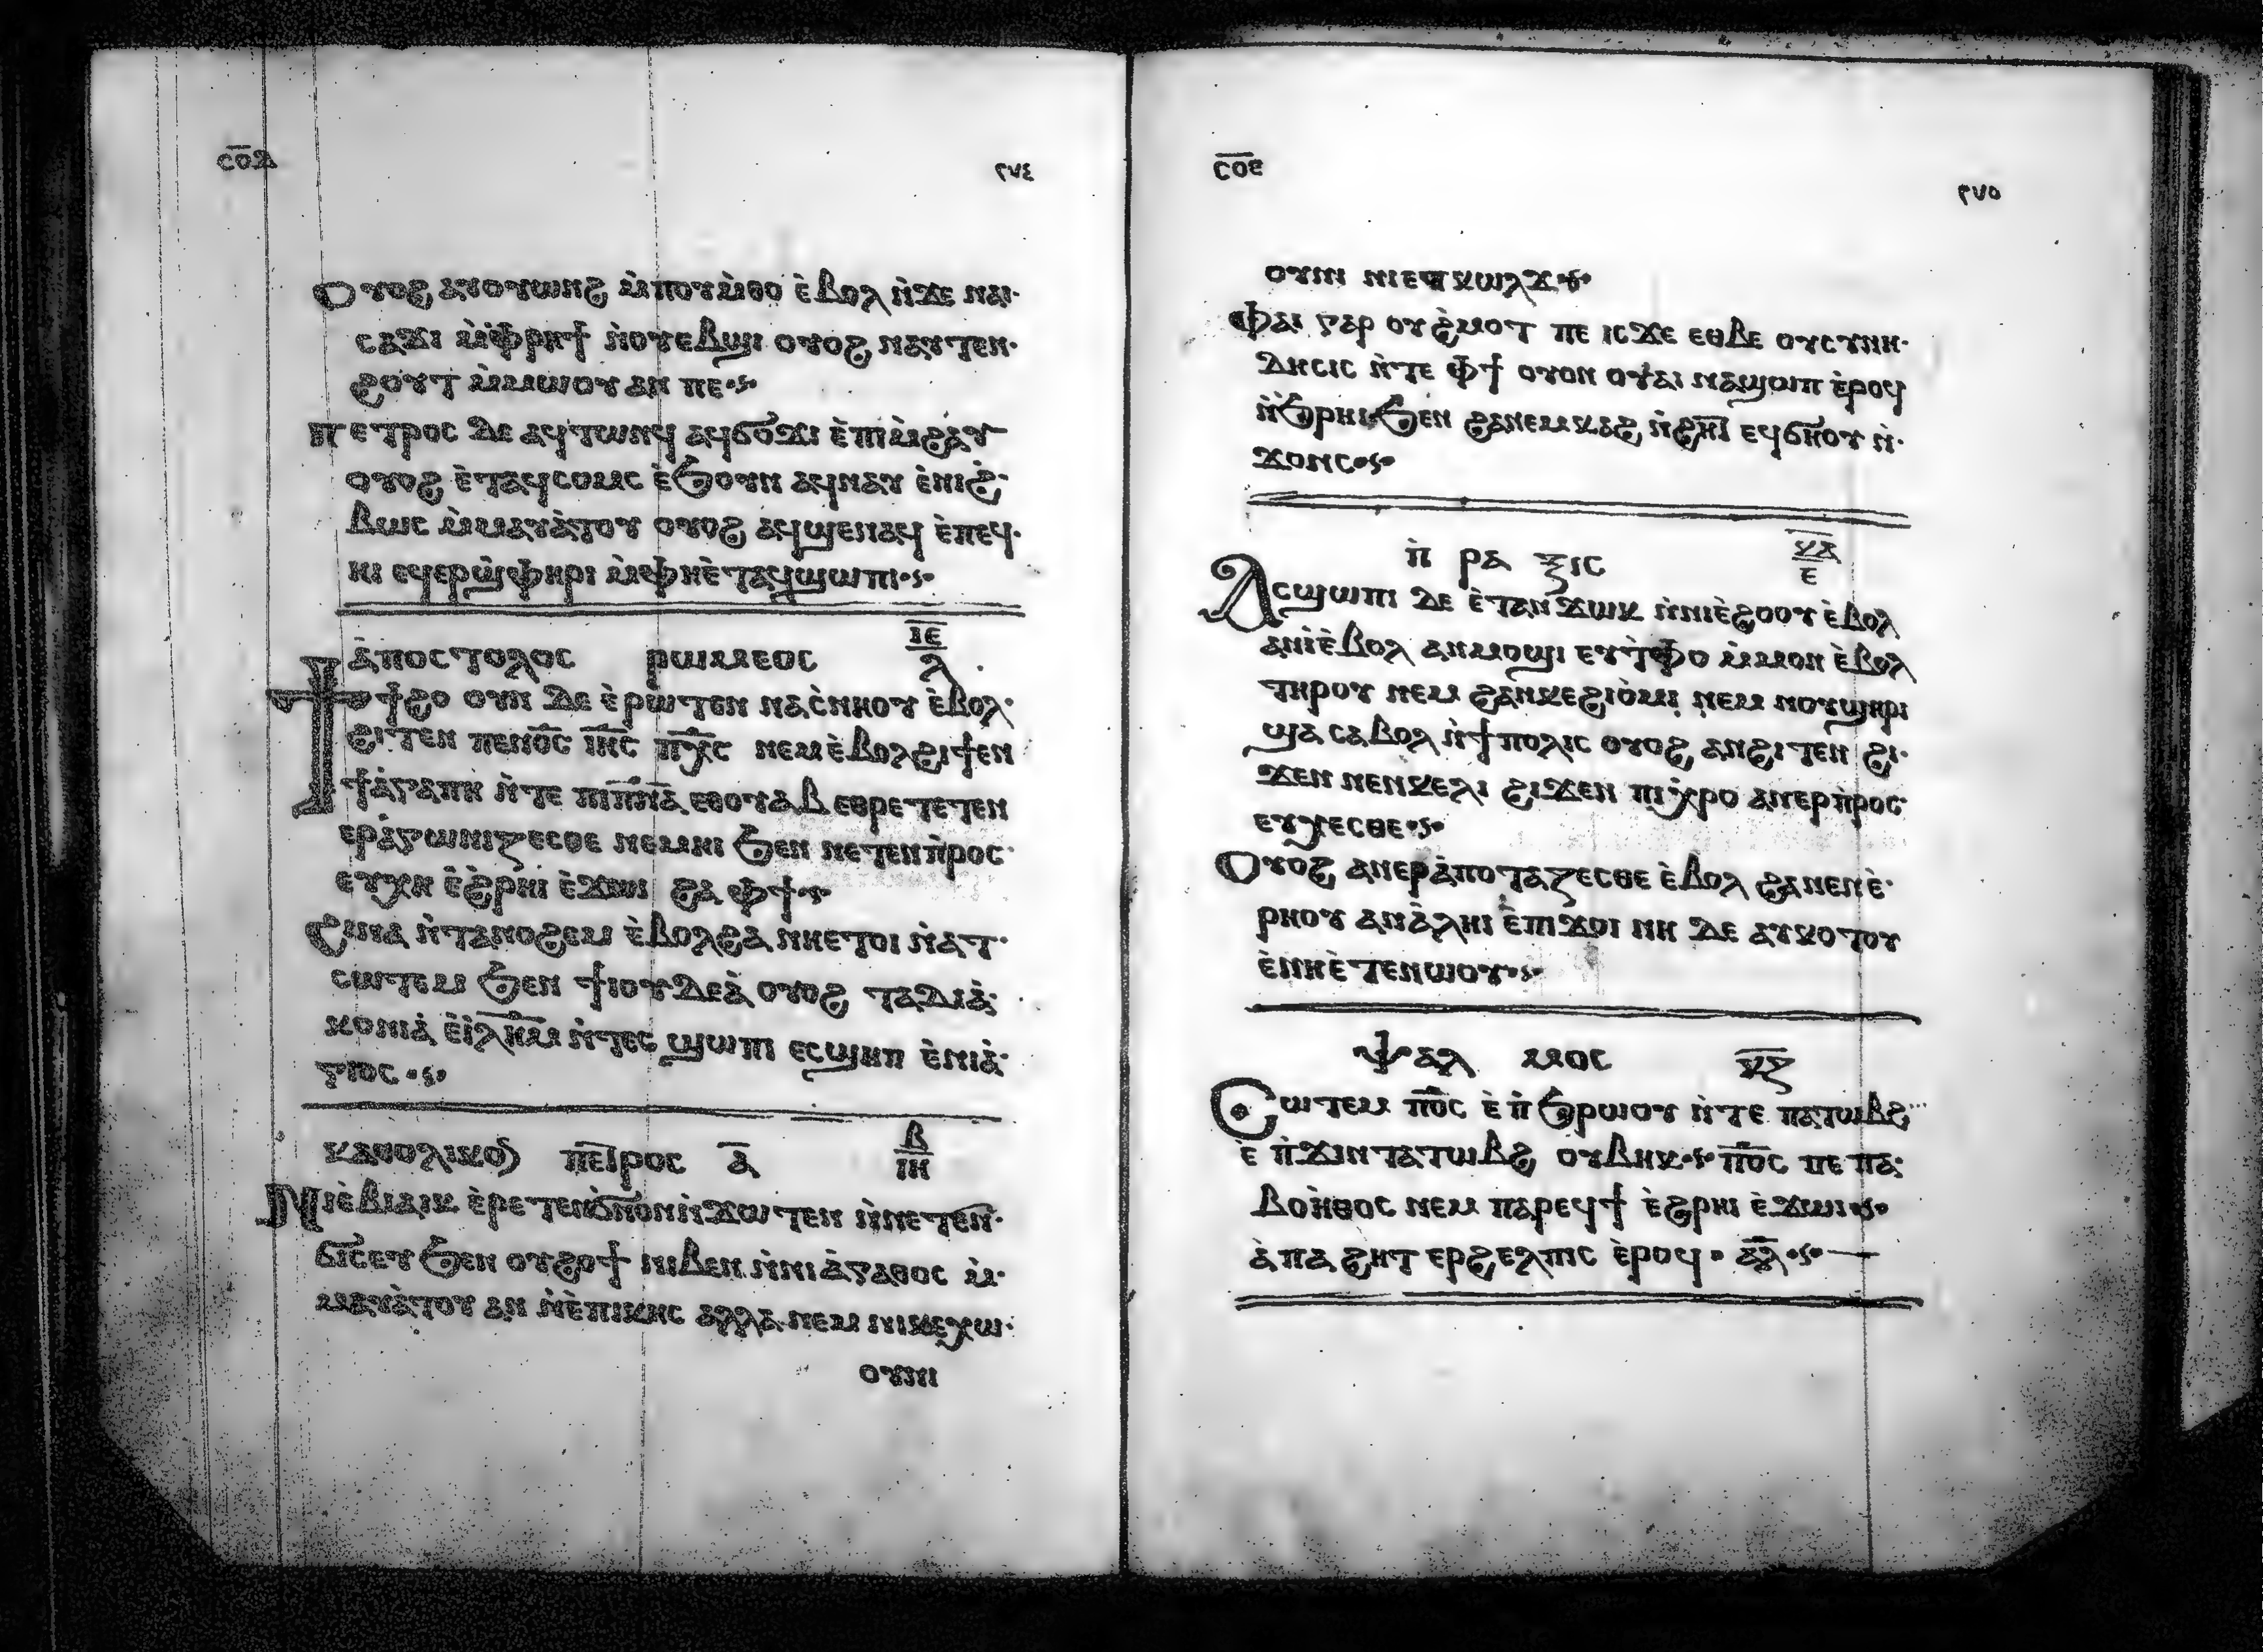 ⲤⲞⲆ ٢٧٤
Ⲟⲩⲟϩ ⲁⲩⲟⲩⲱⲛϩ ⲙ̀ⲡⲟⲩⲙ̀ⲑⲟ ⲉ̀ⲃⲟⲗ ⲛ̀ϫⲉ ⲛⲁⲓ·
ⲥⲁϫⲓ ⲙ̀ⲫⲣⲏϯ ⲛ̀ⲟⲩⲉⲃϣⲓ ⲟⲩⲟϩ ⲛⲁⲩⲧⲉⲛ·
ϩⲟⲩⲧ ⲙ̀ⲙⲱⲟⲩ ⲁⲛ ⲡⲉ·ⲋ·
ⲡⲉⲧⲣⲟⲥ ⲇⲉ ⲁϥⲧⲱⲛϥ ⲁϥϭⲟϫⲓ ⲉ̀ⲡⲓⲙ̀ϩⲁⲩ
ⲟⲩⲟϩ ⲉ̀ⲧⲁϥⲥⲟⲙⲥ ⲉ̀ϧⲟⲩⲛ ⲁϥⲛⲁⲩ ⲉ̀ⲛⲓϩ̀·
ⲃⲱⲥ ⲙ̀ⲙⲁⲩⲁ̀ⲧⲟⲩ ⲟⲩⲟϩ ⲁϥϣⲉⲛⲁϥ ⲉ̀ⲡⲉϥ·
ⲏⲓ ⲉϥⲉⲣϣ̀ⲫⲏⲣⲓ ⲙ̀ⲫⲏⲉ̀ⲧⲁϥϣⲱⲡⲓ·ⲋ·
ⲁ̀ⲡⲟⲥⲧⲟⲗⲟⲥ ⲣⲱⲙⲉⲟⲥ ⲓ̅ⲉ̅ ⲗ
Ϯϯϩⲟ ⲟⲩⲛ ⲇⲉ ⲉ̀ⲣⲱⲧⲉⲛ ⲛⲁⲥ̀ⲛⲏⲟⲩ ⲉ̀ⲃⲟⲗ·
ϩⲓⲧⲉⲛ ⲡⲉⲛⲟ̅ⲥ̅ ⲓ̅ⲏ̅ⲥ̅ ⲡ̅ⲭ̅ⲥ̅ ⲛⲉⲙ ⲉ̀ⲃⲟⲗϩⲓⲧⲉⲛ
ϯⲁ̀ⲅⲁⲡⲏ ⲛ̀ⲧⲉ ⲡⲓⲡ̅ⲛ̅ⲁ̅ ⲉⲑⲟⲩⲁⲃ ⲉⲑⲣⲉⲧⲉⲧⲉⲛ
ⲉⲣⲁ̀ⲅⲱⲛⲓⲍⲉⲥⲑⲉ ⲛⲉⲙⲏⲓ ϧⲉⲛ ⲛⲉⲧⲉⲛⲡ̀ⲣⲟⲥ·
ⲉⲩⲭⲏ ⲉ̀ϩ̀ⲣⲏⲓ ⲉ̀ϫⲱⲓ ϩⲁ ⲫϯ·ⲋ·
Ϩⲓⲛⲁ ⲛ̀ⲧⲁⲛⲟϩⲉⲙ ⲉ̀ⲃⲟⲗϩⲁ ⲛⲏⲉⲧⲟⲓ ⲛ̀ⲁⲧ·
ⲥⲱⲧⲉⲙ ϧⲉⲛ ϯⲓⲟⲩⲇⲉⲁ̀ ⲟⲩⲟϩ ⲧⲁⲇⲓⲁ̀·
ⲕⲟⲛⲓⲁ̀ ⲉ̀ⲓ̅ⲗ̅ⲏ̅ⲙ̅ ⲛ̀ⲧⲉⲥ ϣⲱⲡⲓ ⲉⲥϣⲏⲡ ⲉ̀ⲛⲓⲁ̀·
ⲅⲓⲟⲥ·ⲋ·
ⲕⲁⲑⲟⲗⲓⲕⲟⲛ ⲡⲉⲧⲣⲟⲥ ⲁ̅ ⲃ ⲓ̅ⲏ̅
Ⲛⲓⲉ̀ⲃⲓⲁⲓⲕ ⲉ̀ⲣⲉⲧⲉⲛϭⲛⲟⲛ ⲛ̀ϫⲱⲧⲉⲛ ⲛ̀ⲛⲉⲧⲉⲛ·
ϭⲓⲥⲉⲩ ϧⲉⲛ ⲟⲩϩⲟϯ ⲛⲓⲃⲉⲛ ⲛ̀ⲛⲓⲁ̀ⲅⲁⲑⲟⲥ ⲙ̀·
ⲙⲁⲩⲁ̀ⲧⲟⲩ ⲁⲛ ⲛ̀ⲉ̀ⲡⲓⲕⲏⲥ ⲁⲗⲗⲁ ⲛⲉⲙ ⲛⲓⲕⲉⲭⲱ·
ⲟⲩⲛⲓ
ⲤⲞⲈ ٢٧٥
ⲟⲩⲛⲓ ⲛⲓⲉⲧⲕⲱⲗϫ·ⲋ·
Ⲫⲁⲓ ⲅⲁⲣ ⲟⲩϩ̀ⲙⲟⲧ ⲡⲉ ⲓⲥϫⲉ ⲉⲑⲃⲉ ⲟⲩⲥⲩⲛⲏ·
ⲇⲏⲥⲓⲥ ⲛ̀ⲧⲉ ⲫϯ ⲟⲩⲟⲛ ⲟⲩⲁⲓ ⲛⲁϣⲱⲡ ⲉ̀ⲣⲟϥ
ⲛ̀ϧ̀ⲣⲏⲓϧⲉⲛ ϩⲁⲛⲉⲙⲕⲁϩ ⲛ̀ϩⲏⲓ ⲉϥϭⲏⲟⲩ ⲛ̀·
ϫⲟⲛⲥ·ⲋ·
ⲡ̀ⲣⲁⲝⲓⲥ ⲕ̅ⲁ̅ ⲉ
Ⲁⲥϣⲱⲡⲓ ⲇⲉ ⲉ̀ⲧⲁⲛϫⲱⲕ ⲛ̀ⲛⲓⲉ̀ϩⲟⲟⲩ ⲉ̀ⲃⲟⲗ
ⲁⲛⲓ̀ⲉ̀ⲃⲟⲗ ⲁⲛⲙⲟϣⲓ ⲉⲩⲧ̀ⲫⲟ ⲙ̀ⲙⲟⲛ ⲉ̀ⲃⲟⲗ
ⲧⲏⲣⲟⲩ ⲛⲉⲙ ϩⲁⲛⲕⲉϩⲓⲟ̀ⲙⲓ ⲛⲉⲙ ⲛⲟⲩϣⲏⲣⲓ
ϣⲁ ⲥⲁⲃⲟⲗ ⲛ̀ϯⲡⲟⲗⲓⲥ ⲟⲩⲟϩ ⲁⲛϩⲓⲧⲉⲛ ϩⲓ·
ϫⲉⲛ ⲛⲉⲛⲕⲉⲗⲓ ϩⲓϫⲉⲛ ⲡⲓⲭⲣⲟ ⲁⲛⲉⲣⲡ̀ⲣⲟⲥ·
ⲉⲩⲭⲉⲥⲑⲉ·ⲋ·
Ⲟⲩⲟϩ ⲁⲛⲉⲣⲁ̀ⲡⲟⲧⲁⲍⲉⲥⲑⲉ ⲉ̀ⲃⲟⲗ ϩⲁⲛⲉⲛⲉ̀·
ⲣⲏⲟⲩ ⲁⲛⲁ̀ⲗⲏⲓ ⲉ̀ⲡⲓϫⲟⲓ ⲛⲏ ⲇⲉ ⲁⲩⲕⲟⲧⲟⲩ
ⲉ̀ⲛⲏⲉ̀ⲧⲉⲛⲱⲟⲩ·ⲋ·
ⲯⲁⲗⲙⲟⲥ ⲕ̅ⲍ̅
Ⲥⲱⲧⲉⲙ ⲡ̅ⲟ̅ⲥ̅ ⲉ̀ⲡ̀ϧⲣⲱⲟⲩ ⲛ̀ⲧⲉ ⲡⲁⲧⲱⲃϩ
ⲉ̀ ⲡ̀ϫⲓⲛⲧⲁⲧⲱⲃϩ ⲟⲩⲃⲏⲕ·ⲋ· ⲡ̅ⲟ̅ⲥ̅ ⲡⲉ ⲡⲁ·
ⲃⲟⲏ̀ⲑⲟⲥ ⲛⲉⲙ ⲡⲁⲣⲉϥϯ ⲉ̀ϩⲣⲏⲓ ⲉ̀ϫⲱⲓ·ⲋ·
ⲁ̀ ⲡⲁ ϩⲏⲧ ⲉⲣϩⲉⲗⲡⲓⲥ ⲉ̀ⲣⲟϥ· ⲁ̅ⲗ̅·ⲋ·